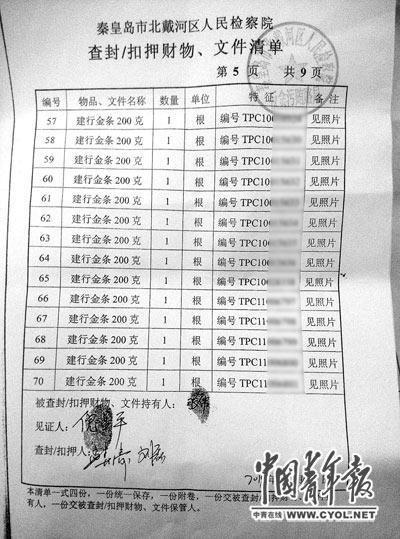 秦皇岛市北戴河区人民检察院
查封/扣押财物、文件清单
第 5 页 共 9 页
编号 物品、文件名称 数量 单位 特征 备注
57 建行金条 200 克 1 根 编号 TPC10 见照片
58 建行金条 200 克 1 根 编号 TPC10 见照片
59 建行金条 200 克 1 根 编号 TPC10 见照片
60 建行金条 200 克 1 根 编号 TPC10 见照片
61 建行金条 200 克 1 根 编号 TPC10 见照片
62 建行金条 200 克 1 根 编号 TPC10 见照片
63 建行金条 200 克 1 根 编号 TPC10 见照片
64 建行金条 200 克 1 根 编号 TPC10 见照片
65 建行金条 200 克 1 根 编号 TPC10 见照片
66 建行金条 200 克 1 根 编号 TPC11 见照片
67 建行金条 200 克 1 根 编号 TPC11 见照片
68 建行金条 200 克 1 根 编号 TPC11 见照片
69 建行金条 200 克 1 根 编号 TPC11 见照片
70 建行金条 200 克 1 根 编号 TPC11 见照片
被查封/扣押财物、文件持有人：
见证人：
查封/扣押人：
本清单一式四份，一份统一保存，一份附卷，一份交被查封/扣押财
有人，一份交被扣押财物、文件保管人。
中国青年报
中青在线 www.CYOL.net